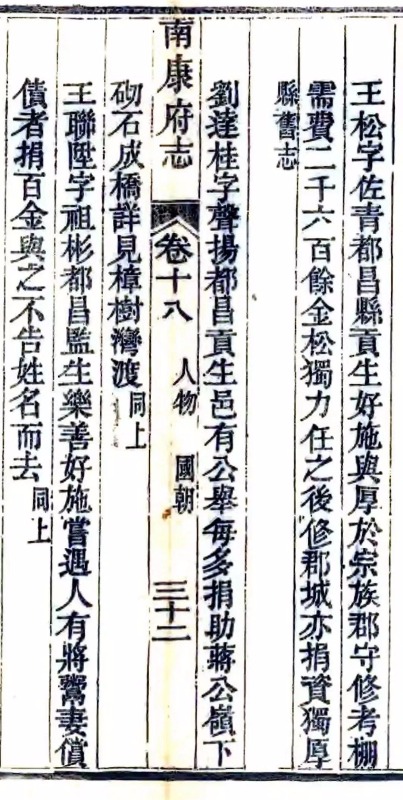 王松字佐青都昌縣貢生好施與厚於宗族郡守修考棚
需費二千六百餘金松獨力任之後修郡城亦捐資獨厚
縣舊志
劉達桂字聲揚都昌貢生邑有公舉每多捐助蔣公嶺下
南康府志 卷十八 人物 國朝 三十二
砌石成橋詳見樟樹灣渡同上
王聯陞字祖彬都昌監生樂善好施嘗遇人有將鬻妻償
債者捐百金與之不告姓名而去同上